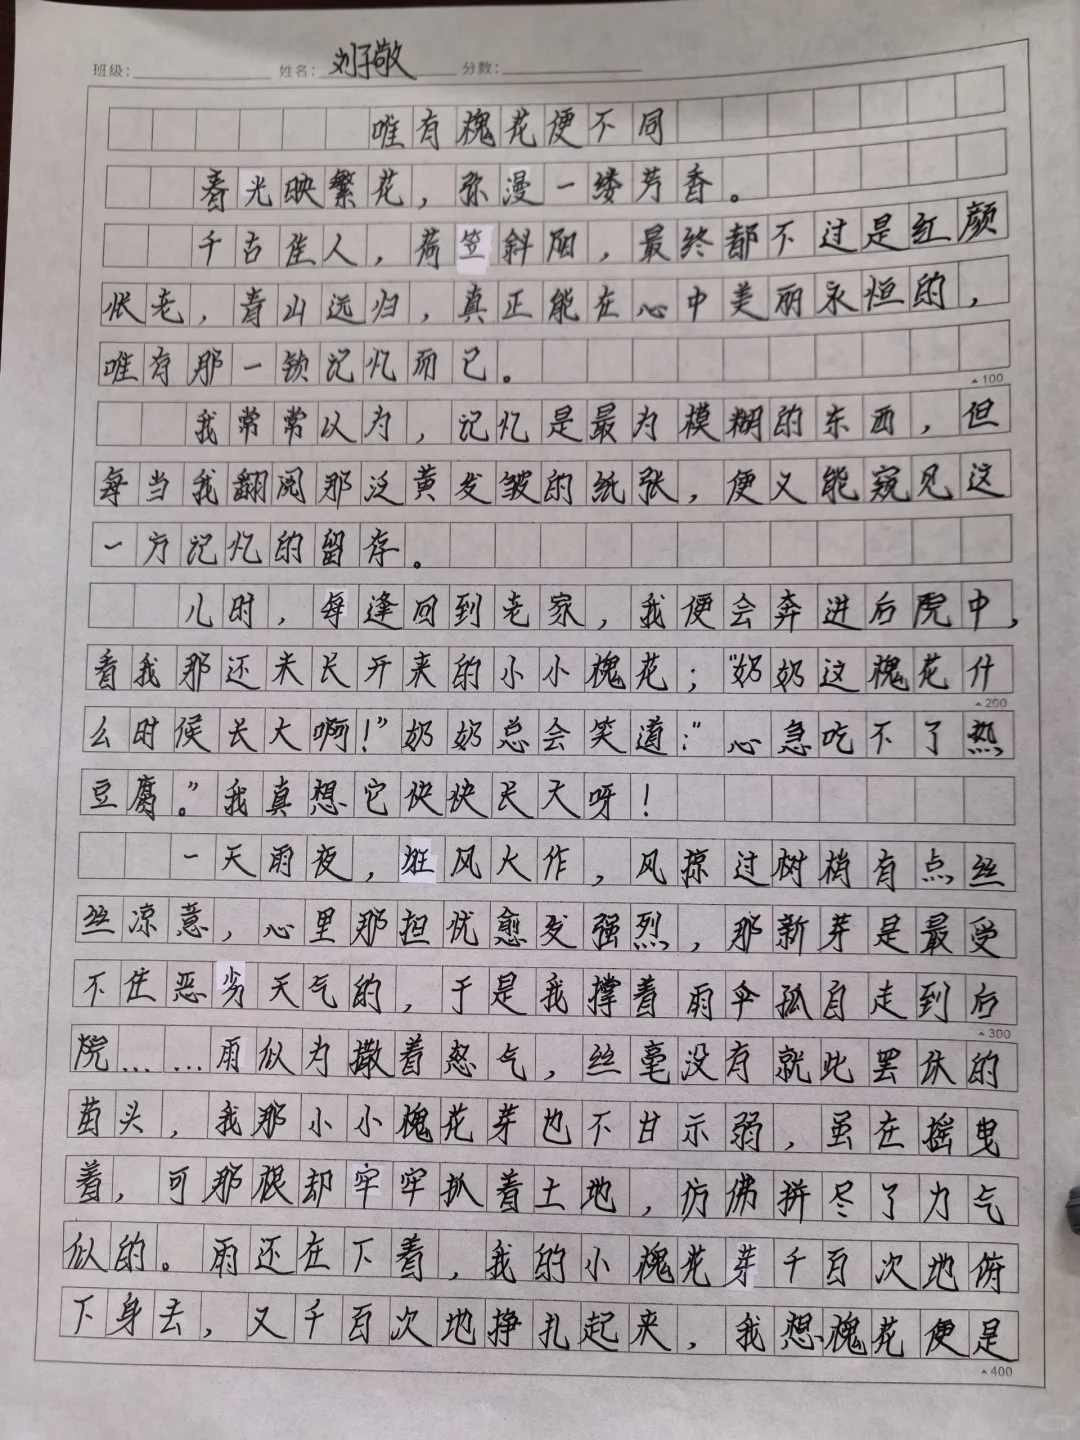 班级： 姓名：刘子敬 分数：
唯有槐花便不同
春光映繁花，弥漫一缕芳香。
千古佳人，荷笠斜阳，最终都不过是红颜
怅老，青山远归，真正能在心中美丽永恒的，
唯有那一锁记忆而已。
▲100
我常常以为，记忆是最为模糊的东西，但
每当我翻阅那泛黄发皱的纸张，便又能窥见这
一方记忆的留存。
儿时，每逢回到老家，我便会奔进后院中，
看我那还未长开来的小小槐花；“奶奶这槐花什
▲200
么时候长大啊！”奶奶总会笑道：“心急吃不了热
豆腐。”我真想它快快长大呀！
一天雨夜，狂风大作，风掠过树梢有点丝
丝凉意，心里那担忧愈发强烈，那新芽是最受
不住恶劣天气的，于是我撑着雨伞孤自走到后
▲300
院……雨似为撒着怒气，丝毫没有就此罢休的
苗头，我那小小槐花芽也不甘示弱，虽在摇曳
着，可那根却牢牢抓着土地，仿佛拼尽了力气
似的。雨还在下着，我的小槐花芽千百次地俯
下身去，又千百次地挣扎起来，我想槐花便是
▲400